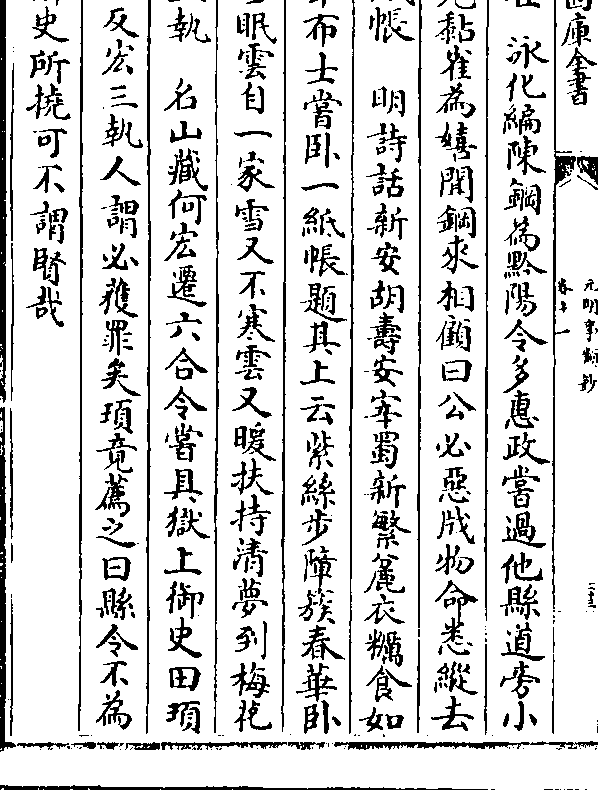 庫全書
元明事類鈔
卷十一
泳化編陳鋼為黔陽令多惠政嘗過他縣道旁小
黏雀為嬉聞鋼來相顧曰公必惡戕物命悉縱去
帳　明詩話新安胡壽安宰蜀新繁麄衣糲食如
布士嘗卧一紙帳題其上云紫絲步障簇春華卧
眠雲自一家雪又不寒雲又暖扶持清夢到梅花
執　名山藏何宏遷六合令嘗具獄上御史田頊
反宏三執人謂必獲罪矣頊竟薦之曰縣令不為
史所撓可不謂賢哉